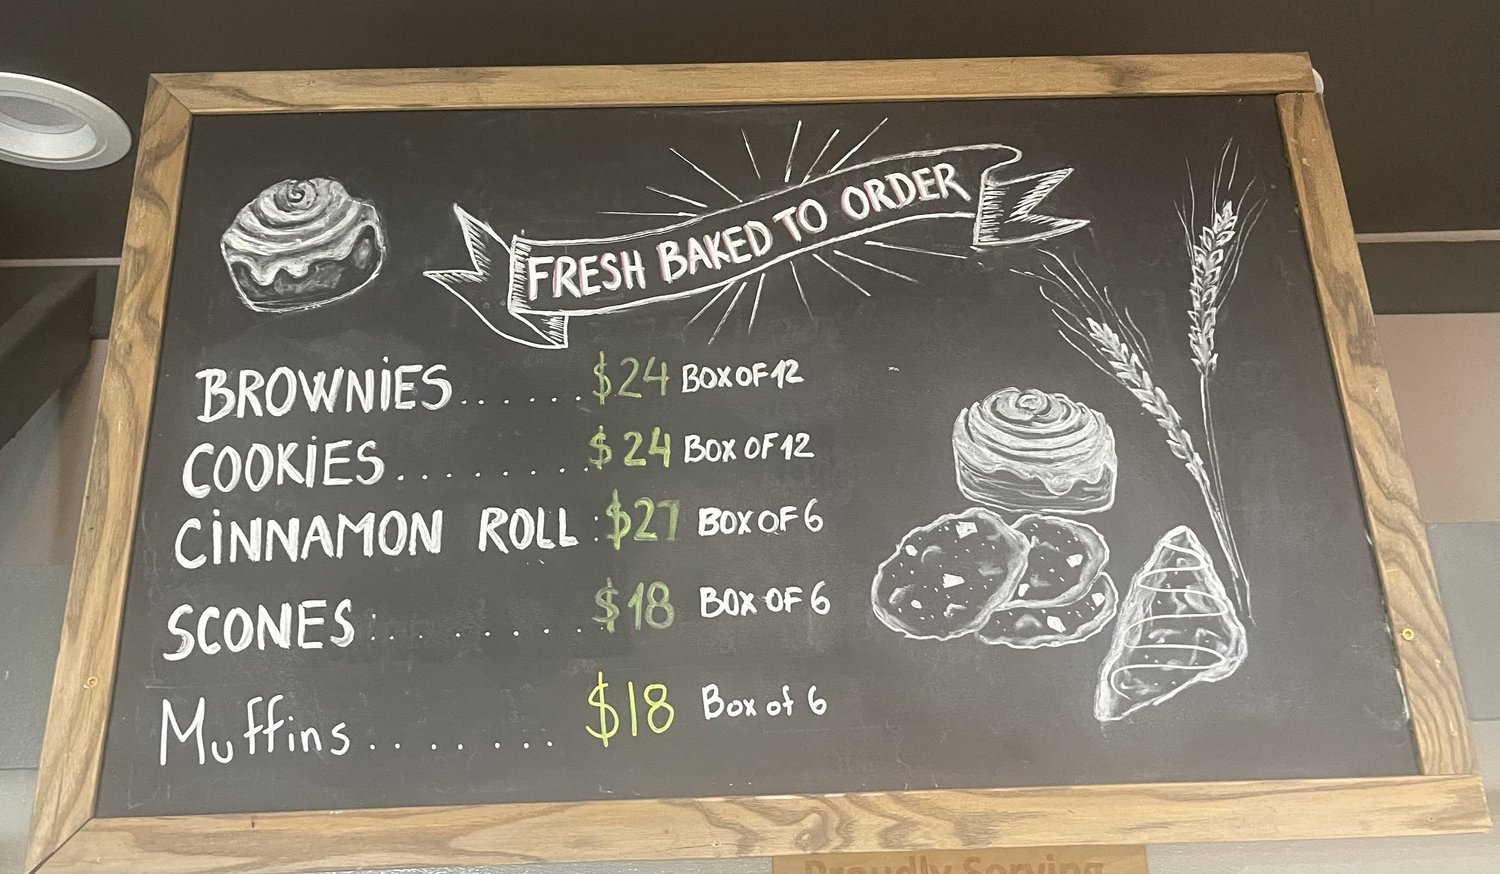 FRESH BAKED TO ORDER
BROWNIES......$24 BOX OF 12
COOKIES.........$24 BOX OF 12
CINNAMON ROLL:$27 BOX OF 6
SCONES........$18 BOX OF 6
Muffins........$18 Box of 6
Proudly Serving